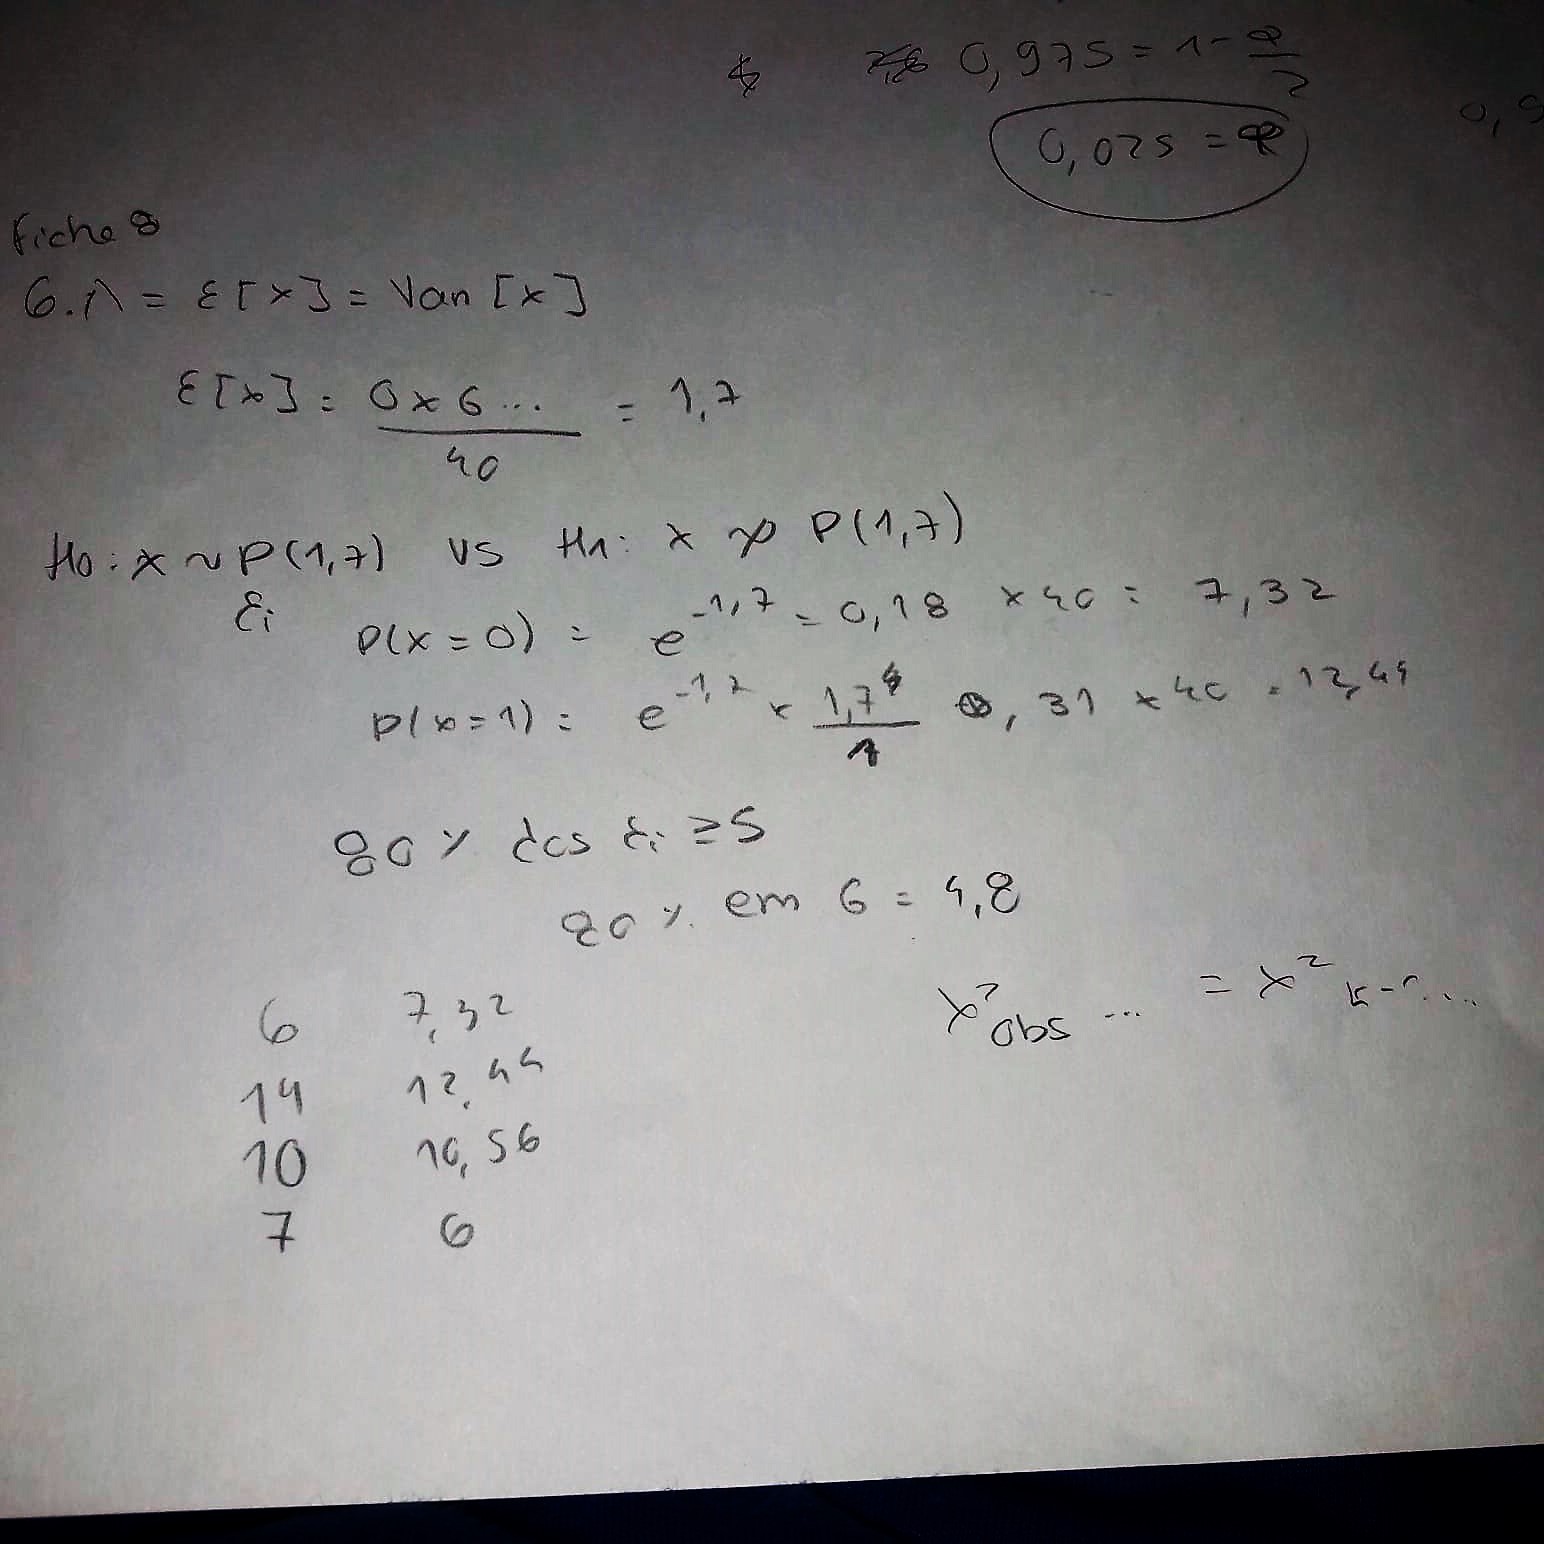 0,975 = 1 - α/2
0,025 = α
0,9
Ficha 8
6. λ = E[x] = Var[x]
E[x] = 0x6.../40 = 1,7
H0: x ~ P(1,7) vs H1: x ≁ P(1,7)
Ei
P(x=0) = e^-1,7 = 0,18 x 40 = 7,32
P(x=1) = e^-1,7 x 1,7/1 0,31 x 40 = 12,44
80% dos Ei ≥ 5
80% em 6 = 4,8
x²obs ... = x² k-1...
6 7,32
14 12,44
10 10,56
7 6